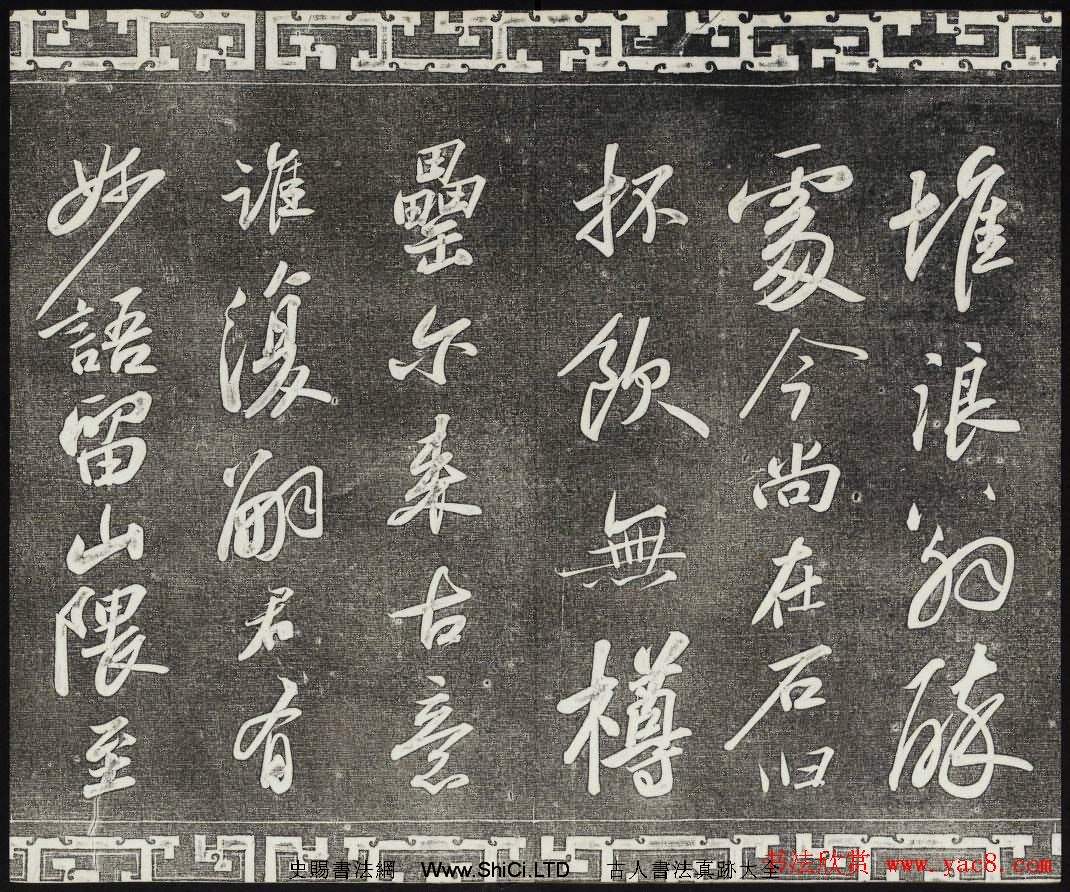 堆浪翁醉
處今尚在石臼
抔飲無樽
罍尔来古意
誰復嗣君有
妙語留山隈至
史賜書法網 Www.ShiCi.LTD 古人書法真跡大全
书法欣赏 www.yac8.com